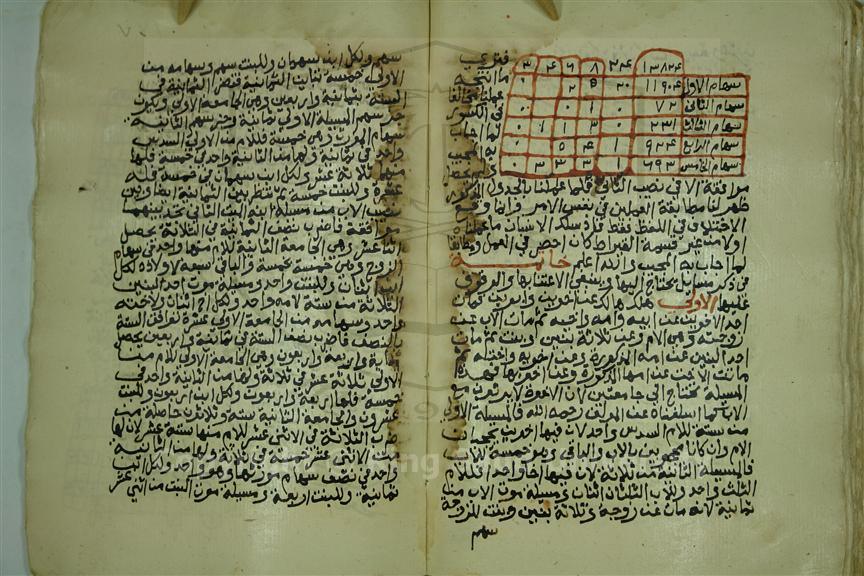 ١٣٨٢٤ ٢٤ ٨ ٦ ٤ ٣
سهام الاول ١١٩٠٤ ٢٠ ٥ ٢ ٠
سهام الثاني ٧٢ ٠ ١ ٠ ٠
سهام الثالث ٢٣١ ٠ ٣ ١ ١ ٠
سهام الرابع ٩٢٤ ١ ٤ ٥ ٠ ٠
سهام الخامس ٦٩٣ ١ ٣ ٣ ٣ ٠
موافقة الا في نصف الثاني فلما عملنا بالجدول المذكور
ظهر لنا مطابقة العملين في نفس الامر وانما وقع
الاختلاف في اللفظ فقط
اولا من غير قسمة القيراط كان اخصر في العمل
لما اجاب به المجيب والله اعلم خاتمة
في ذكر مسايل يحتاج اليها وينبغي الاعتنا بها والوقوف
عليها الاولى هلك هالك عن اخوين وابوين ثم مات
احد الاخوين عن ابيه وامه واخيه ثم مات الاب عن
زوجته وهي الام وعن ثلاثة بنين وبنت ثم مات
احد البنين عن امه المذكورة وعن اخويه واخته ثم
ماتت الاخت عن امها المذكورة وعن اخويها فهذه
المسيلة تحتاج الى جامعتين لان الاخوة لا يرثون مع
الاب كما اسلفناه عن المولف رحمه الله فالمسيلة الاولى
من ستة للام السدس واحد لان فيها اخوين يحجبان
الام وان كانا محجوبين بالاب والباقي وهو خمسة للاب
فالمسيلة الثانية من ثلاثة لان فيها اخا واحدا فللام
الثلث واحد وللاب الثلثان اثنان ومسيلة موت الاب من
ثمانية لانه مات عن زوجة وثلاثة بنين وبنت للزوجة
سهم
سهم ولكل ابن سهمان وللبنت سهم وسهامه من
الاولى خمسة تباين الثمانية فتضرب الثمانية في
الستة بثمانية واربعين وهي الجامعة الاولى ويكون
جزء سهم المسيلة الاولى ثمانية وجزء سهم الثانية
سهام المورث وهي خمسة فللام من الاولى السدس
واحد في ثمانية ولها من الثانية واحد في خمسة فلها
منهما ثلاثة عشر ولكل ابن سهمان في خمسة فله
عشرة وللبنت خمسة ثم تنظر بين الثمانية ايضا وبين
نصيب الاب من مسيلة ابنه الميت الثاني تجد بينهما
موافقة فاضرب نصف الثمانية في الثلاثة يحصل
اثنا عشر وهي الجامعة الثانية للام منها واحد في سهام
الزوج وهي خمسة بخمسة والباقي سبعة لاولاده لكل
ابن اثنان وللبنت واحد ومسيلة موت احد البنين
الثلاثة من ستة لامه واحد ولكل اخ اثنان ولاخته
واحد وسهامه من الجامعة الاولى عشرة توافق الستة
بالنصف فاضرب نصف الستة في ثمانية واربعين يحصل
ماية واربعة واربعون وهي الجامعة الاولى للام من
الاولى ثلاثة عشر في ثلاثة ولها من الثانية واحد في
خمسة فلها اربعة واربعون ولكل ابن اربعون وللبنت
عشرون والجامعة الثانية ستة وثلاثون حاصلة من
ضرب الثلاثة في الاثني عشر للام منها ستة عشر لان لها
من الاثني عشر خمسة في ثلاثة ولها من الثانية
واحد في نصف سهام مورثها وهو واحد ولكل ابن
ثمانية وللبنت اربعة ومسيلة موت البنت من اثني عشر